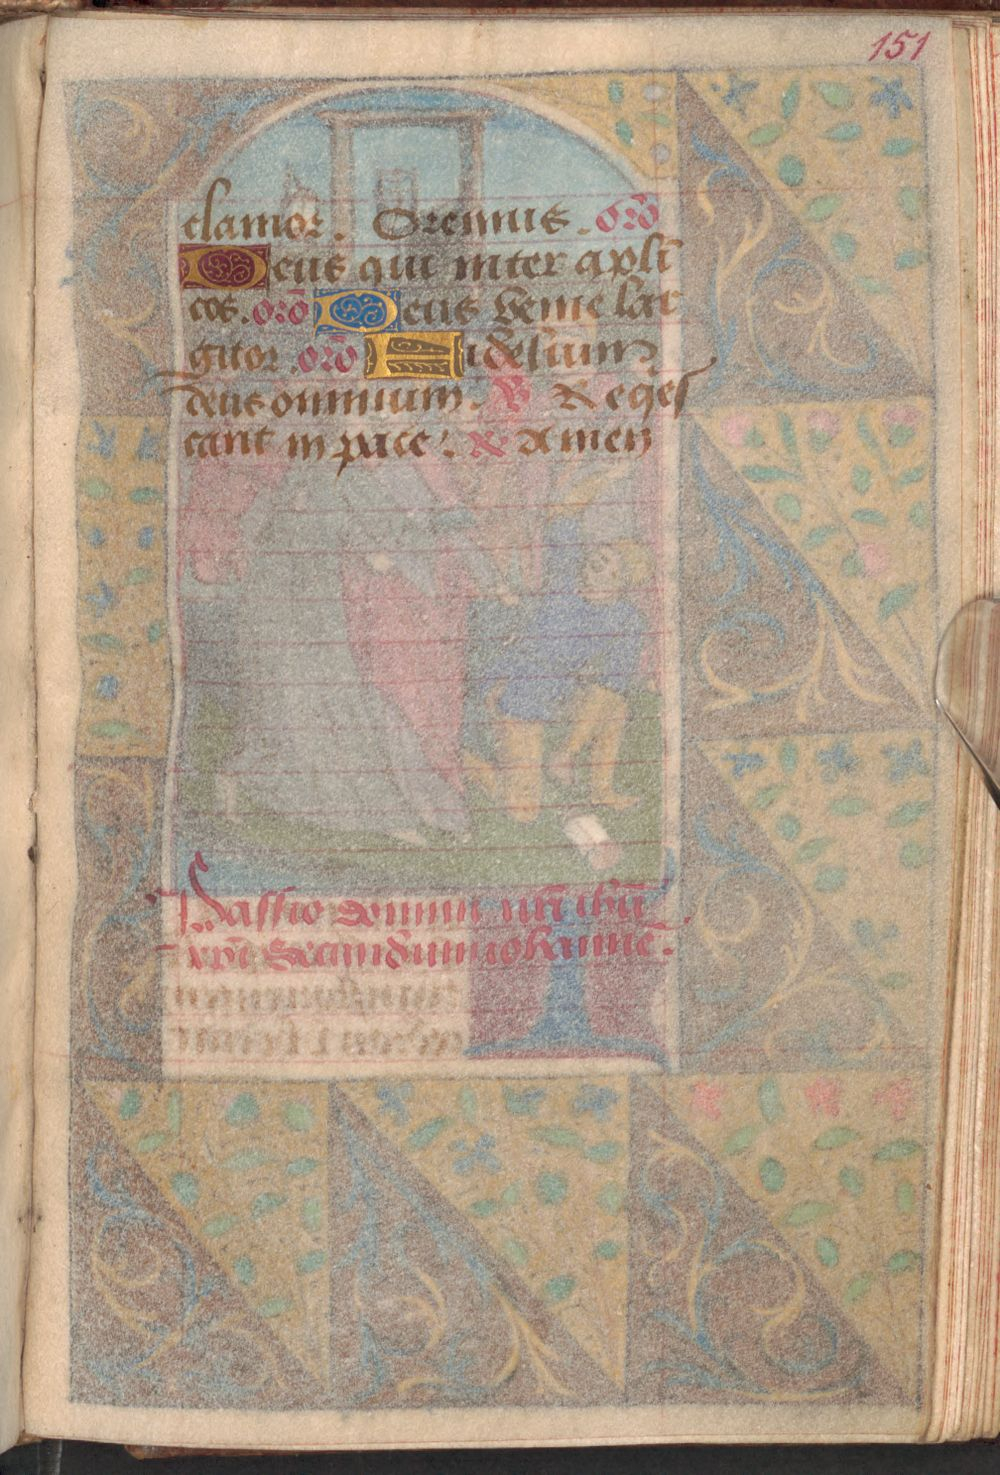 151
clamor. Oremus. orõ
Deus qui inter apli
cos. orõ Deus venie lar
gitor. orõ Fideliũm
deus omnium. V̷ Reqes
cant in pace. R̷ Amen
Passio domini nr̃i ihũ
xp̃i Secundũm iohannẽ.